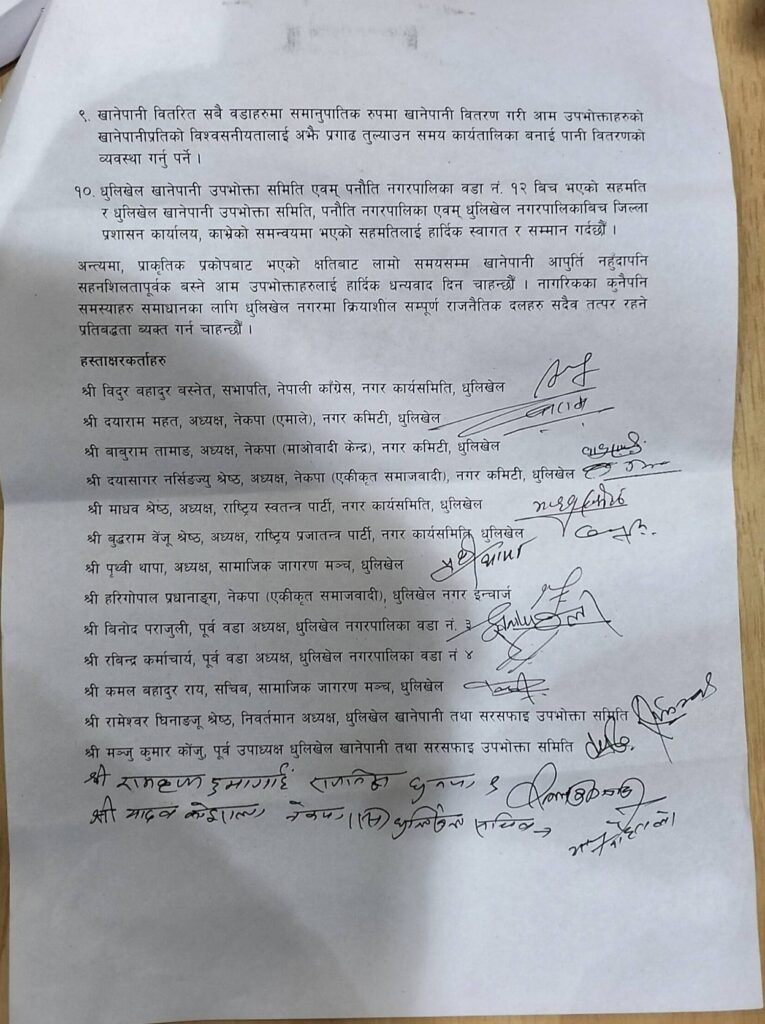 ९. खानेपानी वितरित सबै वडाहरुमा समानुपातिक रुपमा खानेपानी वितरण गरी आम उपभोक्ताहरुको
खानेपानीप्रतिको विश्वसनीयतालाई अझै प्रगाढ तुल्याउन समय कार्यतालिका बनाई पानी वितरणको
व्यवस्था गर्नु पर्ने ।
१०. धुलिखेल खानेपानी उपभोक्ता समिति एवम् पनौति नगरपालिका वडा नं. १२ बिच भएको सहमति
र धुलिखेल खानेपानी उपभोक्ता समिति, पनौति नगरपालिका एवम् धुलिखेल नगरपालिकाबिच जिल्ला
प्रशासन कार्यालय, काभ्रेको समन्वयमा भएको सहमतिलाई हार्दिक स्वागत र सम्मान गर्दछौं ।
अन्त्यमा, प्राकृतिक प्रकोपबाट भएको क्षतिबाट लामो समयसम्म खानेपानी आपुर्ति नहुँदापनि
सहनशिलतापूर्वक बस्ने आम उपभोक्ताहरुलाई हार्दिक धन्यवाद दिन चाहन्छौं । नागरिकका कुनैपनि
समस्याहरु समाधानका लागि धुलिखेल नगरमा क्रियाशील सम्पूर्ण राजनैतिक दलहरु सदैव तत्पर रहने
प्रतिबद्धता व्यक्त गर्न चाहन्छौं ।
हस्ताक्षरकर्ताहरु
श्री विदुर बहादुर बस्नेत, सभापति, नेपाली काँग्रेस, नगर कार्यसमिति, धुलिखेल
श्री दयाराम महत, अध्यक्ष, नेकपा (एमाले), नगर कमिटी, धुलिखेल
श्री बाबुराम तामाङ, अध्यक्ष, नेकपा (माओवादी केन्द्र), नगर कमिटी, धुलिखेल
श्री दयासागर नर्सिङज्यु श्रेष्ठ, अध्यक्ष, नेकपा (एकीकृत समाजवादी), नगर कमिटी, धुलिखेल
श्री माधव श्रेष्ठ, अध्यक्ष, राष्ट्रिय स्वतन्त्र पार्टी, नगर कार्यसमिति, धुलिखेल
श्री बुद्धराम वैंजू श्रेष्ठ, अध्यक्ष, राष्ट्रिय प्रजातन्त्र पार्टी, नगर कार्यसमिति, धुलिखेल
श्री पृथ्वी थापा, अध्यक्ष, सामाजिक जागरण मञ्च, धुलिखेल
श्री हरिगोपाल प्रधानाङ्ग, नेकपा (एकीकृत समाजवादी), धुलिखेल नगर ईन्चार्ज
श्री बिनोद पराजुली, पूर्व वडा अध्यक्ष, धुलिखेल नगरपालिका वडा नं. ३
श्री रविन्द्र कर्माचार्य, पूर्व वडा अध्यक्ष, धुलिखेल नगरपालिका वडा नं ४
श्री कमल बहादुर राय, सचिब, सामाजिक जागरण मञ्च, धुलिखेल
श्री रामेश्वर घिनाङजू श्रेष्ठ, निवर्तमान अध्यक्ष, धुलिखेल खानेपानी तथा सरसफाइ उपभोक्ता समिति
श्री मञ्जु कुमार कोंजु, पूर्व उपाध्यक्ष धुलिखेल खानेपानी तथा सरसफाइ उपभोक्ता समिति
श्री
श्री यादव कोइराला, नेकपा, धुलिखेल सचिव